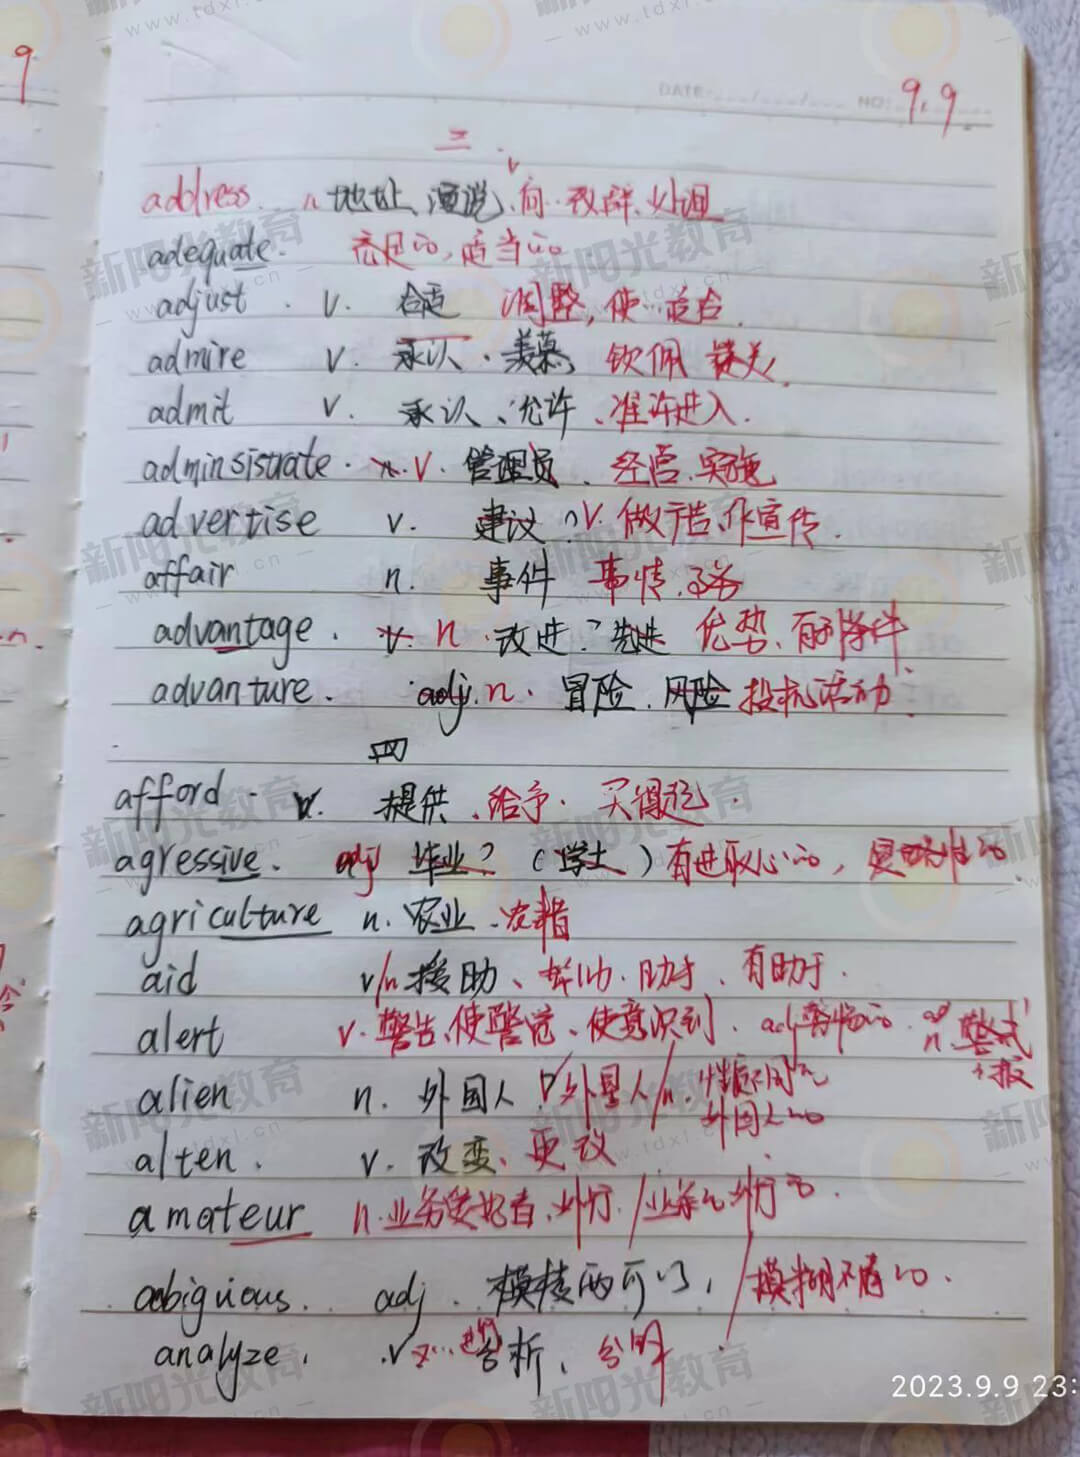 9
DATE: NO: 9.9
三.
address n 地址、演说、向…致辞、处理
adequate. 充足的,适当的
adjust . v. 合适 调整,使…适合.
admire v. 承认.羡慕, 钦佩 赞美,
admit v. 承认、允许、准许进入.
adminsistrate . n. v. 管理员 、经营、实施
advertise v. 建议? v. 做广告、作宣传.
affair n. 事件 事情、
advantage . v. n .改进?先进 优势、有利条件
advanture . adj. n. 冒险、风险 投机活动.
四
afford . v. 提供、给予. 买得起.
agressive . adj 毕业?(学士)有进取心的,侵略性的
agriculture n. 农业、农耕
aid v/n 援助、帮助.助手、有助于.
alert v. 警告、使警觉、使意识到. adj 警惕的. n. 警戒
警报
alien n. 外国人?/外星人/n. 性质不同的
外国人的
alten . v. 改变、更议
amateur n. 业务爱好者、外行. /业余的外行的.
abiguous. adj. 模棱两可的, /模糊不清的.
analyze . .v 对…进行分析、分解.
2023.9.9 23:
新阳光教育
www.tdxl.cn